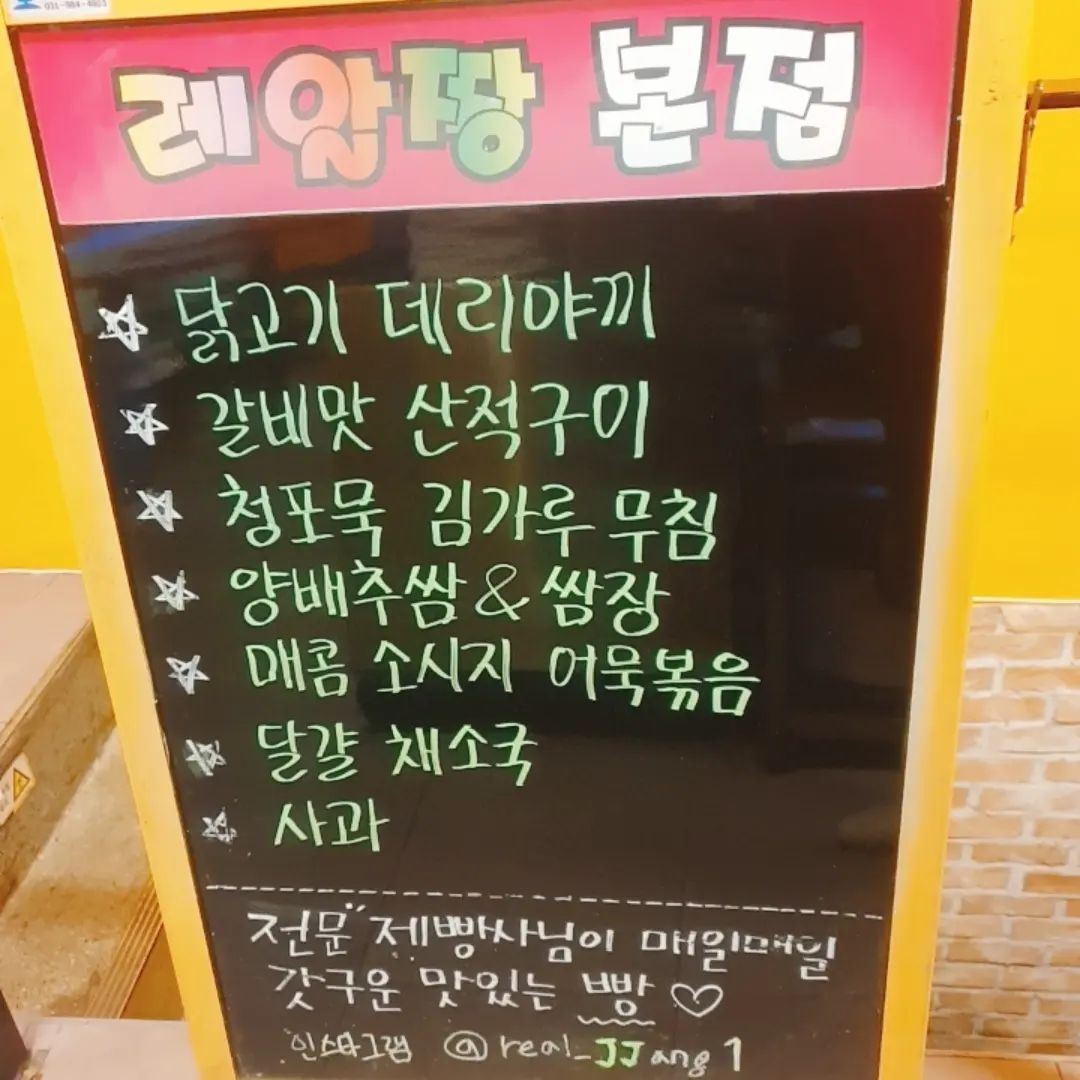 031-984-4803
레알짱 본점
닭고기 데리야끼
갈비맛 산적구이
청포묵 김가루 무침
양배추쌈 & 쌈장
매콤 소시지 어묵볶음
달걀 채소국
사과
전문 제빵사님이 매일매일
갓구운 맛있는 빵 ♡
인스타그램 @real_JJang1